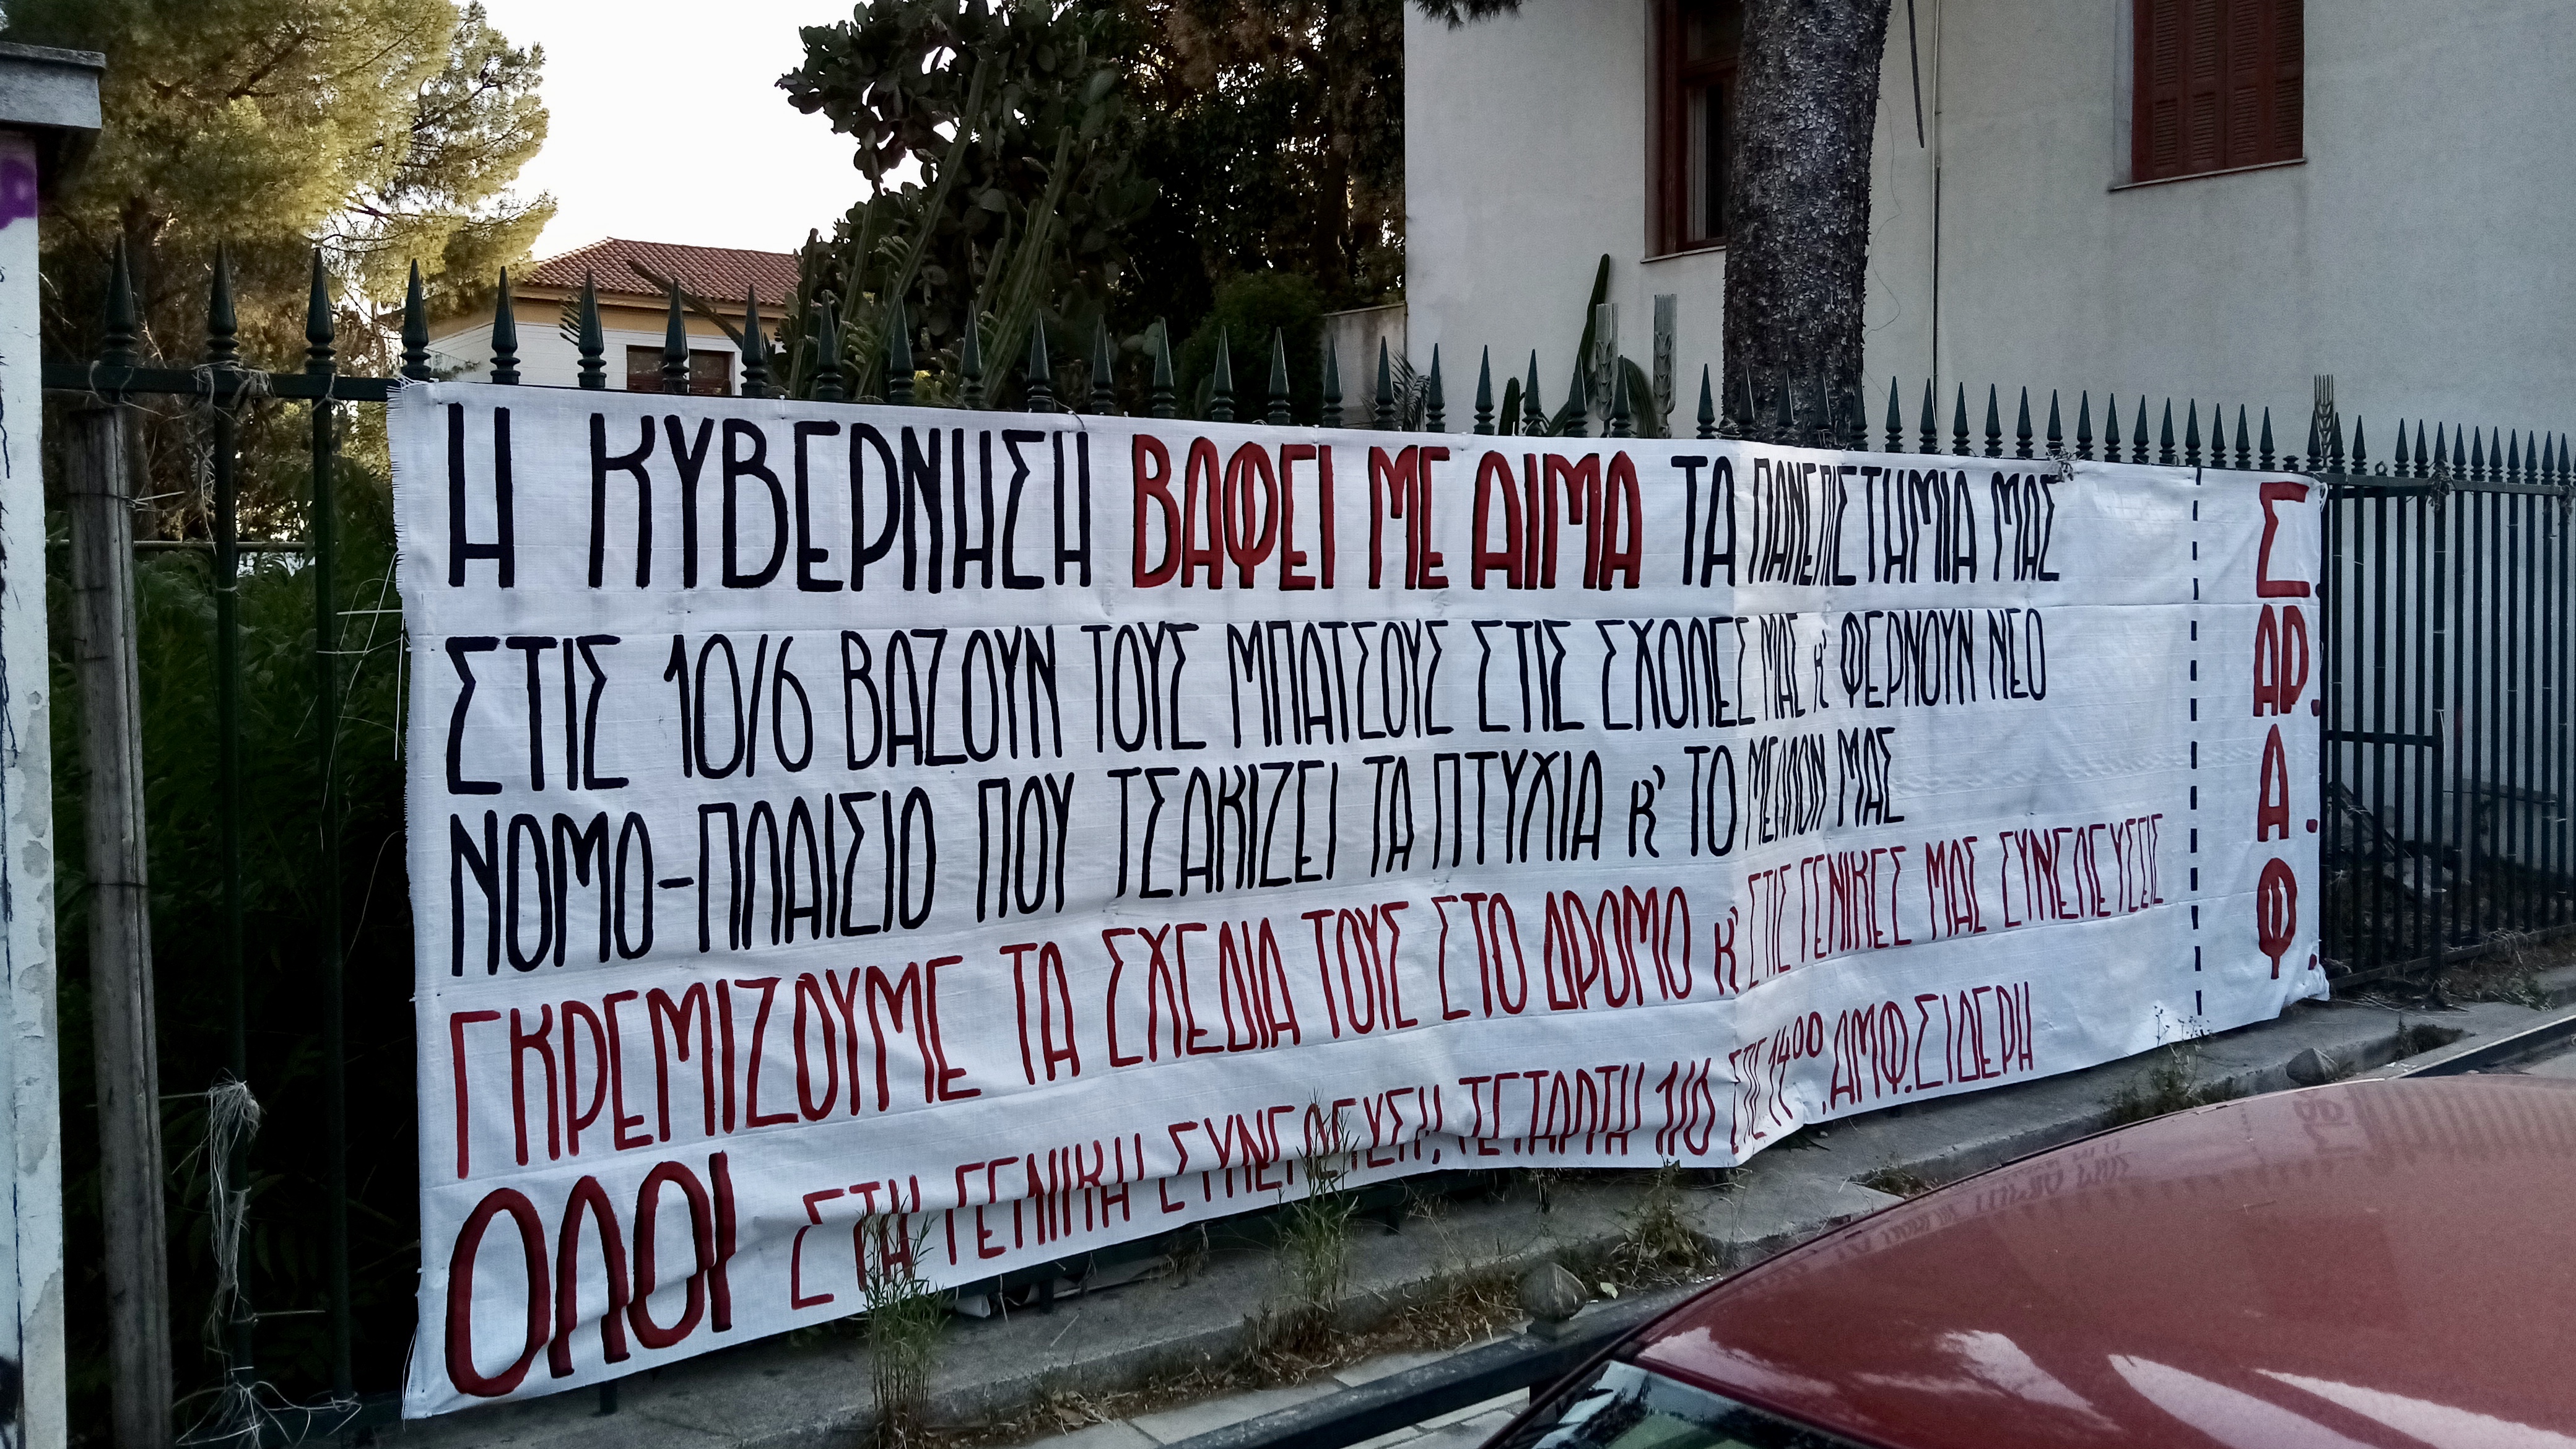 Η ΚΥΒΕΡΝΗΣΗ ΒΑΦΕΙ ΜΕ ΑΙΜΑ ΤΑ ΠΑΝΕΠΙΣΤΗΜΙΑ ΜΑΣ
ΣΤΙΣ 10/6 ΒΑΖΟΥΝ ΤΟΥΣ ΜΠΑΤΣΟΥΣ ΣΤΙΣ ΣΧΟΛΕΣ ΜΑΣ Κ' ΦΕΡΝΟΥΝ ΝΕΟ
ΝΟΜΟ-ΠΛΑΙΣΙΟ ΠΟΥ ΤΣΑΚΙΖΕΙ ΤΑ ΠΤΥΧΙΑ Κ' ΤΟ ΜΕΛΛΟΝ ΜΑΣ
ΓΚΡΕΜΙΖΟΥΜΕ ΤΑ ΣΧΕΔΙΑ ΤΟΥΣ ΣΤΟ ΔΡΟΜΟ Κ' ΣΤΙΣ ΓΕΝΙΚΕΣ ΜΑΣ ΣΥΝΕΛΕΥΣΕΙΣ
ΟΛΟΙ ΣΤΗ ΓΕΝΙΚΗ ΣΥΝΕΛΕΥΣΗ, ΤΕΤΑΡΤΗ 1/6 ΣΤΙΣ 1400, ΑΜΦ. ΣΙΔΕΡΗ
Σ.
ΑΡ.
Α.
Φ.